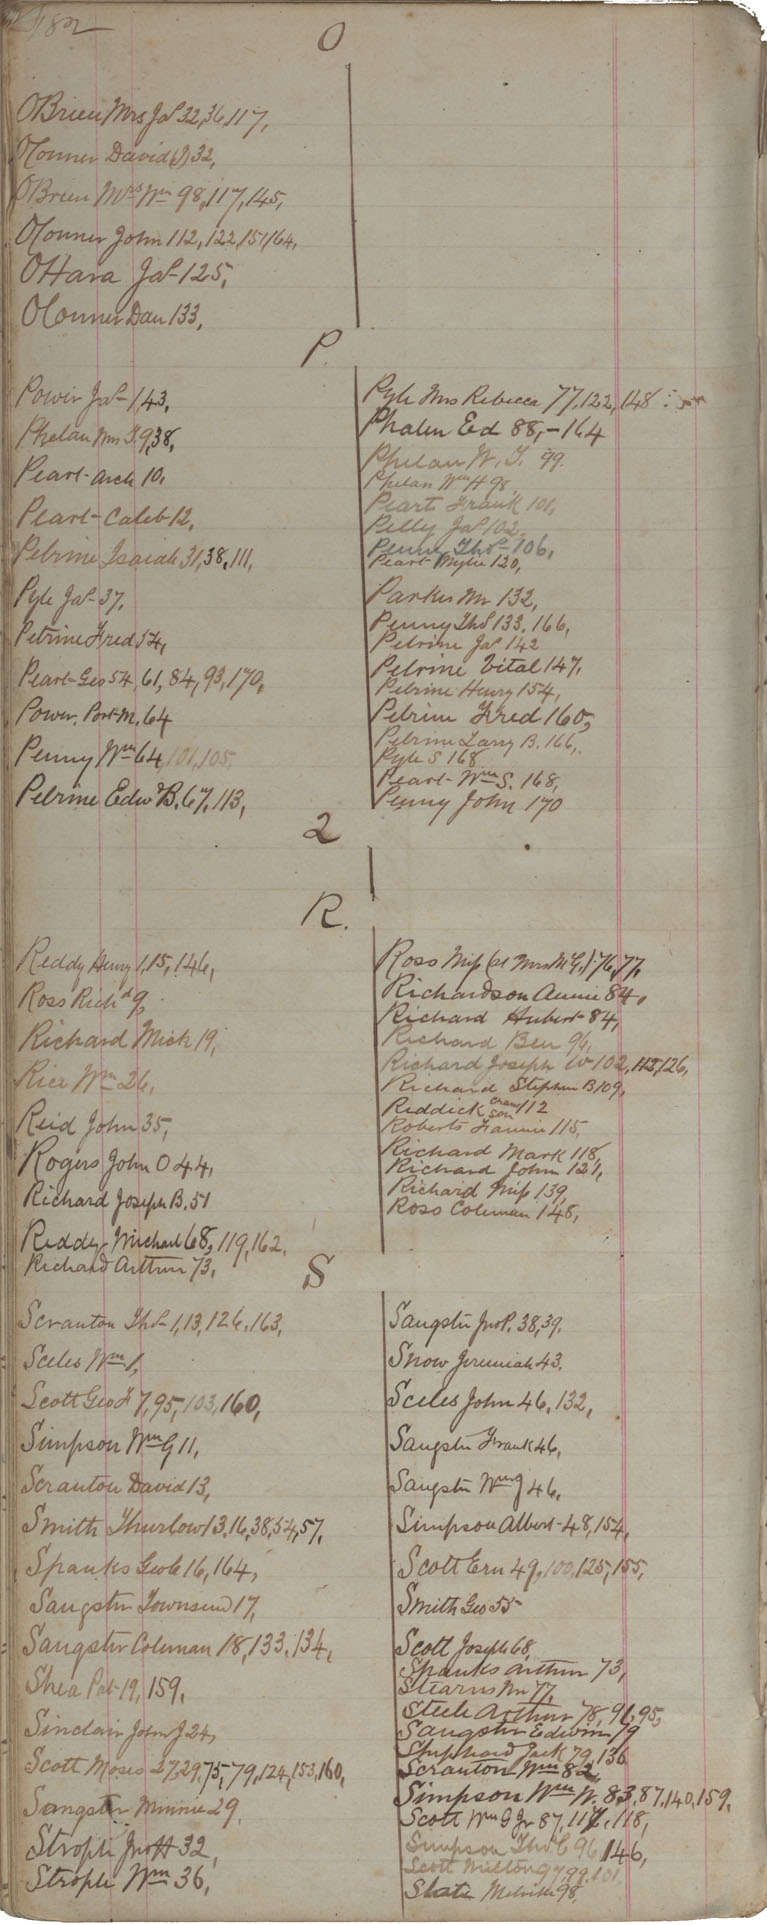 182
O
OBrien Mrs Jas 32, 36, 117,
OConner David 32,
OBrien Mrs Wm 98, 117, 145,
OConner John 112, 122, 151, 164,
OHara Jas 125,
OConner Dan 133,
P.
Power Jas 1, 43,
Phelan Wm T. 9, 38,
Peart Arch 10,
Peart Caleb 12,
Petrine Isaiah 31, 38, 111,
Pyle Jas 37,
Petrine Fred 54,
Peart Geo 54, 61, 84, 93, 170,
Power, Port M, 64
Penny Wm 64, 101, 105,
Petrine Edwd B. 67, 113,
Pyle Mrs Rebecca 77, 122, 148
Phalen Ed 88, - 164
Phelan W. T. 99.
Phelan Wm H 98
Peart Frank 101,
Pelly Jas 102,
Penny Thos 106,
Peart Mylie 120,
Parks Mr 132,
Penny Thos 133, 166,
Petrine Jas 142
Petrine Vital 147,
Petrine Henry 154,
Petrine Fred 160,
Petrine Larry B. 166,
Pyle S 168
Peart Wm S. 168,
Penny John 170
2
R.
Reddy Henry 1, 15, 146,
Ross Richd 9,
Richard Mick 19,
Rice Wm 26,
Reid John 35,
Rogers John O 44,
Richard Joseph B. 51
Reddy Michael 68, 119, 162,
Richard Arthur 73,
Ross Miss (at Mrs McG.) 76, 77,
Richardson Annie 84,
Richard Hubert 84,
Richard Ben 96,
Richard Joseph W 102, 112, 126,
Richard Stephen B 109,
Reddick 112
Roberts Fannie 115,
Richard Mark 118,
Richard John 121,
Richard Miss 139,
Ross Coleman 148,
S
Scranton Thos 1, 13, 126, 163,
Sceles Wm 1,
Scott Geo F 7, 95, 103, 160,
Simpson Wm G 11,
Scranton David 13,
Smith Thurlow 13, 16, 38, 54, 57,
Spanks Geo E 16, 164,
Sangster Townsend 17,
Sangster Coleman 18, 133, 134,
Shea Pat 19, 159,
Sinclair John J 24,
Scott Moses 27, 29, 75, 79, 124, 153, 160,
Sangster Minnie 29,
Strople Jno H 32,
Strople Wm 36,
Sangster Jno P. 38, 39,
Snow Jeremiah 43.
Sceles John 46, 132,
Sangster Frank 46,
Sangster Wm J 46,
Simpson Albert 48, 154,
Scott Ern 49, 100, 125, 155,
Smith Geo 55
Scott Joseph 68,
Spanks Arthur 73,
Stearns Wm 77,
Steele Arthur 78, 91, 95,
Sangster Edwin 79
Shephard Jack 79, 136
Scranton Wm 82,
Simpson Wm W. 83, 87, 140, 159,
Scott Wm G Jr 87, 117, 118,
Simpson Thos C 96, 146,
Scott Milton 97, 99, 101,
98,